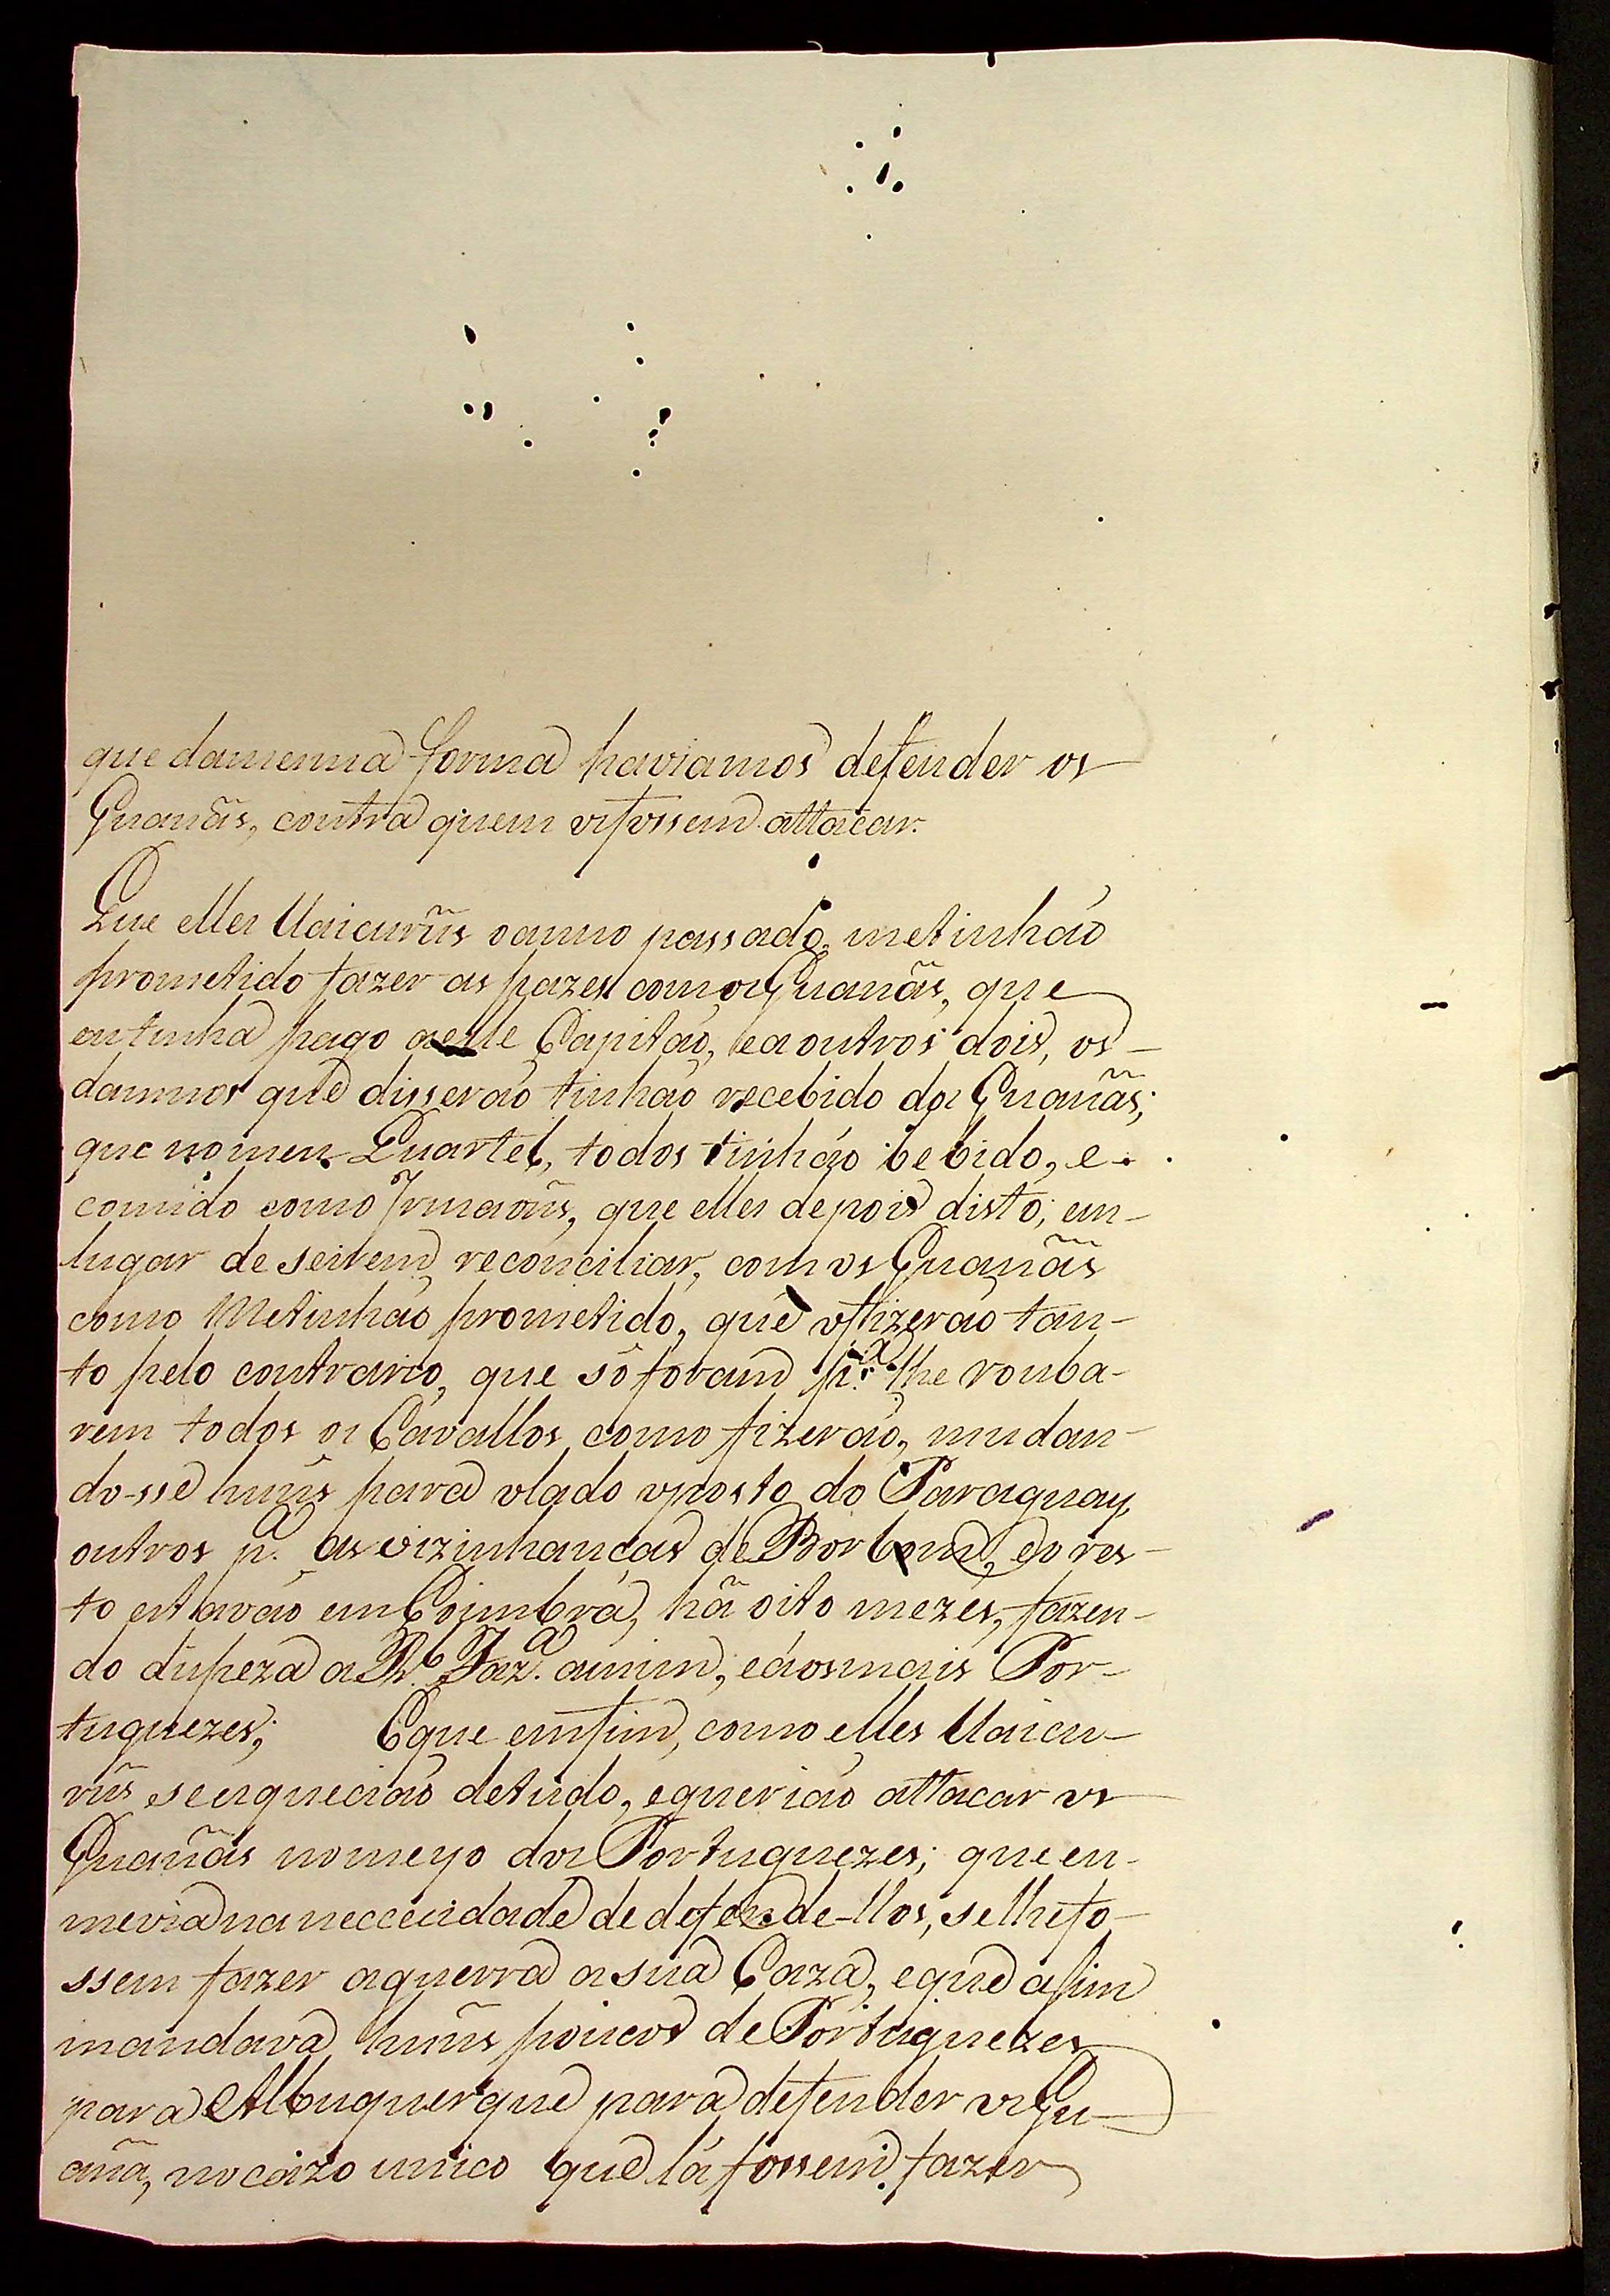 que damesma forma haviamos defender os
Guanãs, contra quem osfossem attacar.
Que elles Uaicurũs oanno passado, metinhão
prometido fazer as pazes comos Guanãs, que
eutinha pago aelle Capitão, ea outros dois, os
damnos que disserão tinhão recebido dos Guanãs;
que nomeu Quartel, todos tinhão bebido, e
comido como Irmaõns, que elles depois disto, em
lugar de seirem reconciliar, com os Guanãs
como Metinhão prometido, que ofizerão tan-
to pelo contrario, que só foram p.ª lhe rouba-
rem todos os Cavallos, como fizerão, mudan-
do-sse huñs para olado oposto do Paraguay,
outros p.ª as vizinhanças de Borbom, eo res-
to estavão em Coimbra, hã oito mezes, fazen-
do dispeza a R.l Faz.ª amim, eáosmais Por-
tuguezes; Eque emfim, como elles Uaicu-
rũs seesquecião detudo, equerião attacar os
Guanãs nomeyo dos Portuguezes; que eu
mevia na neccecidade de defende-llos, selhefo-
ssem fazer aguerra a sua Caza, eque assim
mandava huñs poucos de Portuguezes
para Albuquerque para defender os Gu-
anã, nocazo unico que lá fossem fazer